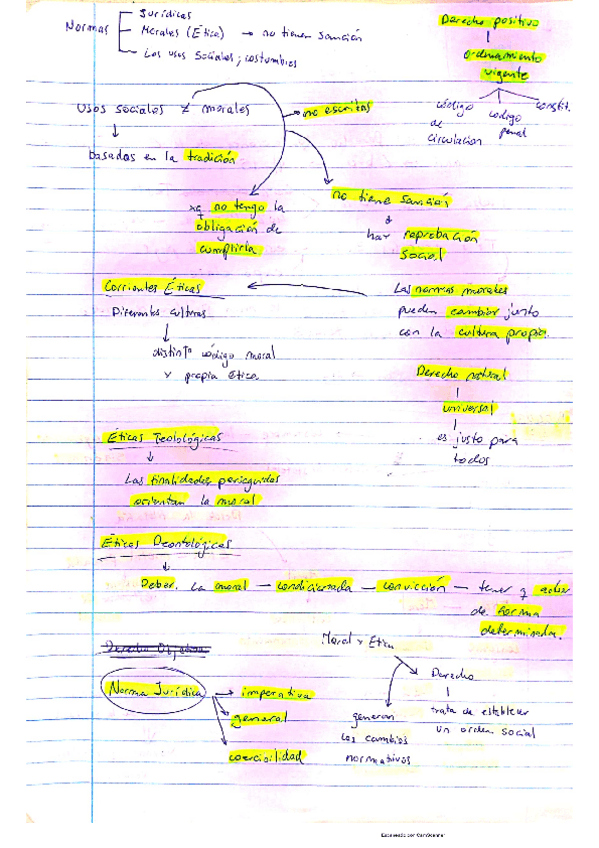 Normas
Jurídicas
Morales (Ética) → no tienen sanción
Los usos sociales; costumbres
Derecho positivo
ordenamiento
vigente
código
de
circulación
código
penal
constit.
Usos sociales ≠ morales
no escritas
↓
basados en la tradición
xq no tengo la
obligación de
cumplirla
no tiene sanción
↓
hay reprobación
social
Corrientes Éticas
Diferentes culturas
↓
distinto código moral
y propia ética
Las normas morales
pueden cambiar junto
con la cultura propia.
Derecho natural
universal
es justo para
todos
Éticas Teolológicas
↓
Las finalidades perseguidas
orientan la moral
Éticas Deontológicas
↓
Deber. La moral — condicionada — convicción — tener q actuar
de forma
determinada.
Derecho Objetivo
Moral y Ética
generan
los cambios
normativos
Derecho
trata de establecer
un orden social
Norma Jurídica
→ imperativa
general
coercibilidad
Escaneado con CamScanner